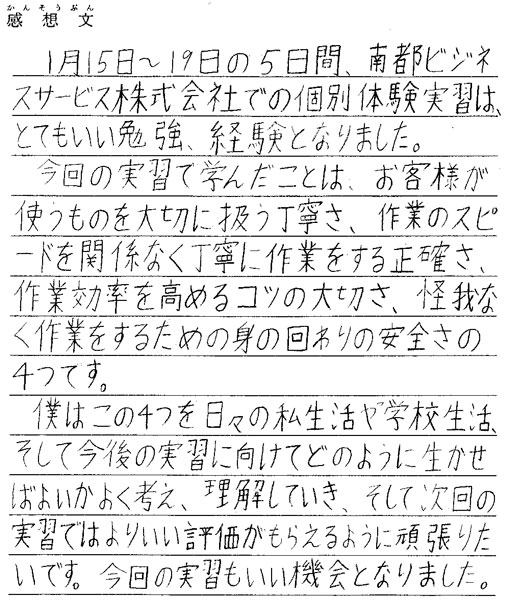 かんそうぶん
感想文
1月15日～19日の5日間、南都ビジネ
スサービス株式会社での個別体験実習は、
とてもいい勉強、経験となりました。
今回の実習で学んだことは、お客様が
使うものを大切に扱う丁寧さ、作業のスピ
ードを関係なく丁寧に作業をする正確さ、
作業効率を高めるコツの大切さ、怪我な
く作業をするための身の回わりの安全さの
4つです。
僕はこの4つを日々の私生活や学校生活、
そして今後の実習に向けてどのように生かせ
ばよいかよく考え、理解していき、そして次回の
実習ではよりいい評価がもらえるように頑張りた
いです。今回の実習もいい機会となりました。